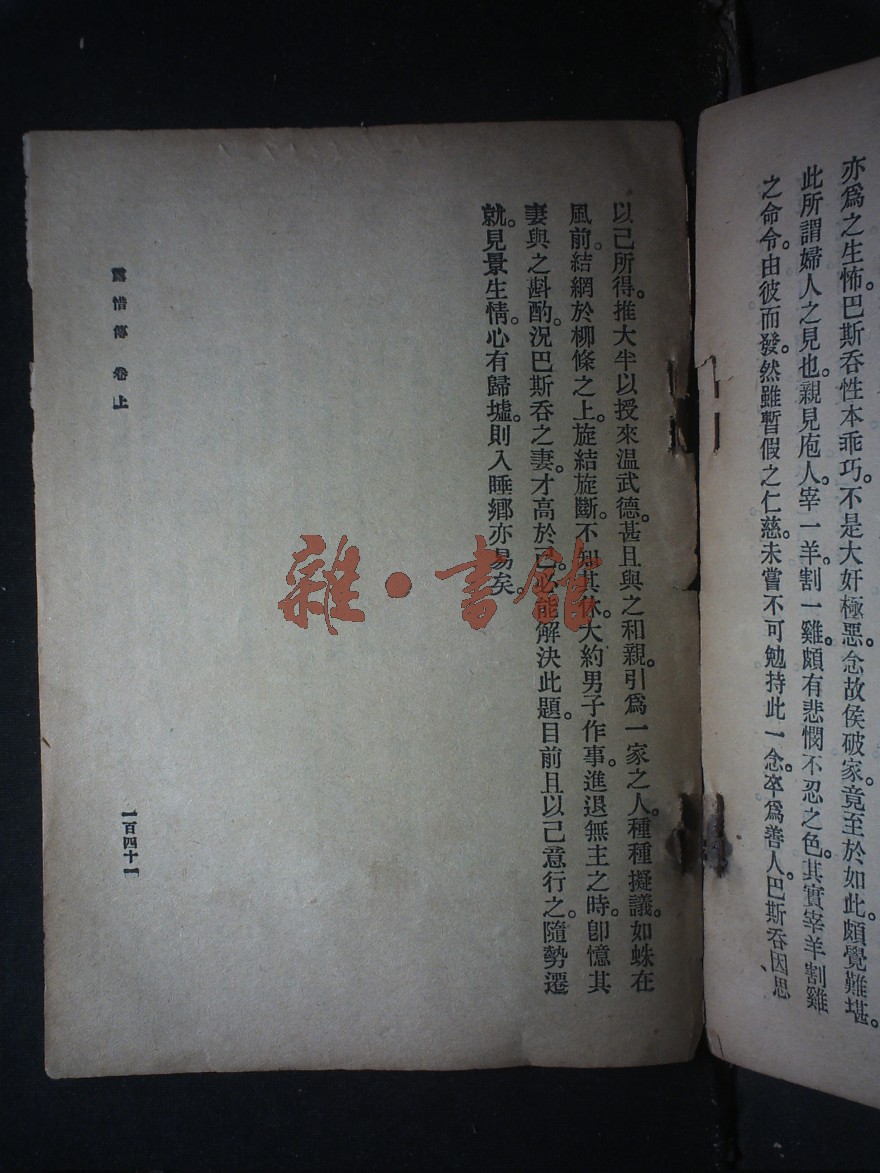 亦爲之生怖。巴斯吞性本乖巧。不是大奸極惡。念故侯破家。竟至於如此。頗覺難堪。
此所謂婦人之見也。親見庖人。宰一羊。割一雞。頗有悲憫不忍之色。其實宰羊割雞
之命令。由彼而發。然雖暫假之仁慈。未嘗不可勉持此一念。卒爲善人。巴斯吞因思
以己所得。推大半以授來温武德。甚且與之和親。引爲一家之人。種種擬議。如蛛在
風前。結網於柳條之上。旋結旋斷。不知其休。大約男子作事。進退無主之時。卽憶其
妻與之斟酌。況巴斯吞之妻。才高於己。必能解決此題。目前且以己意行之。隨勢遷
就。見景生情。心有歸墟。則入睡鄉亦易矣。
露惜傳 卷上
一百四十一
雜·書館